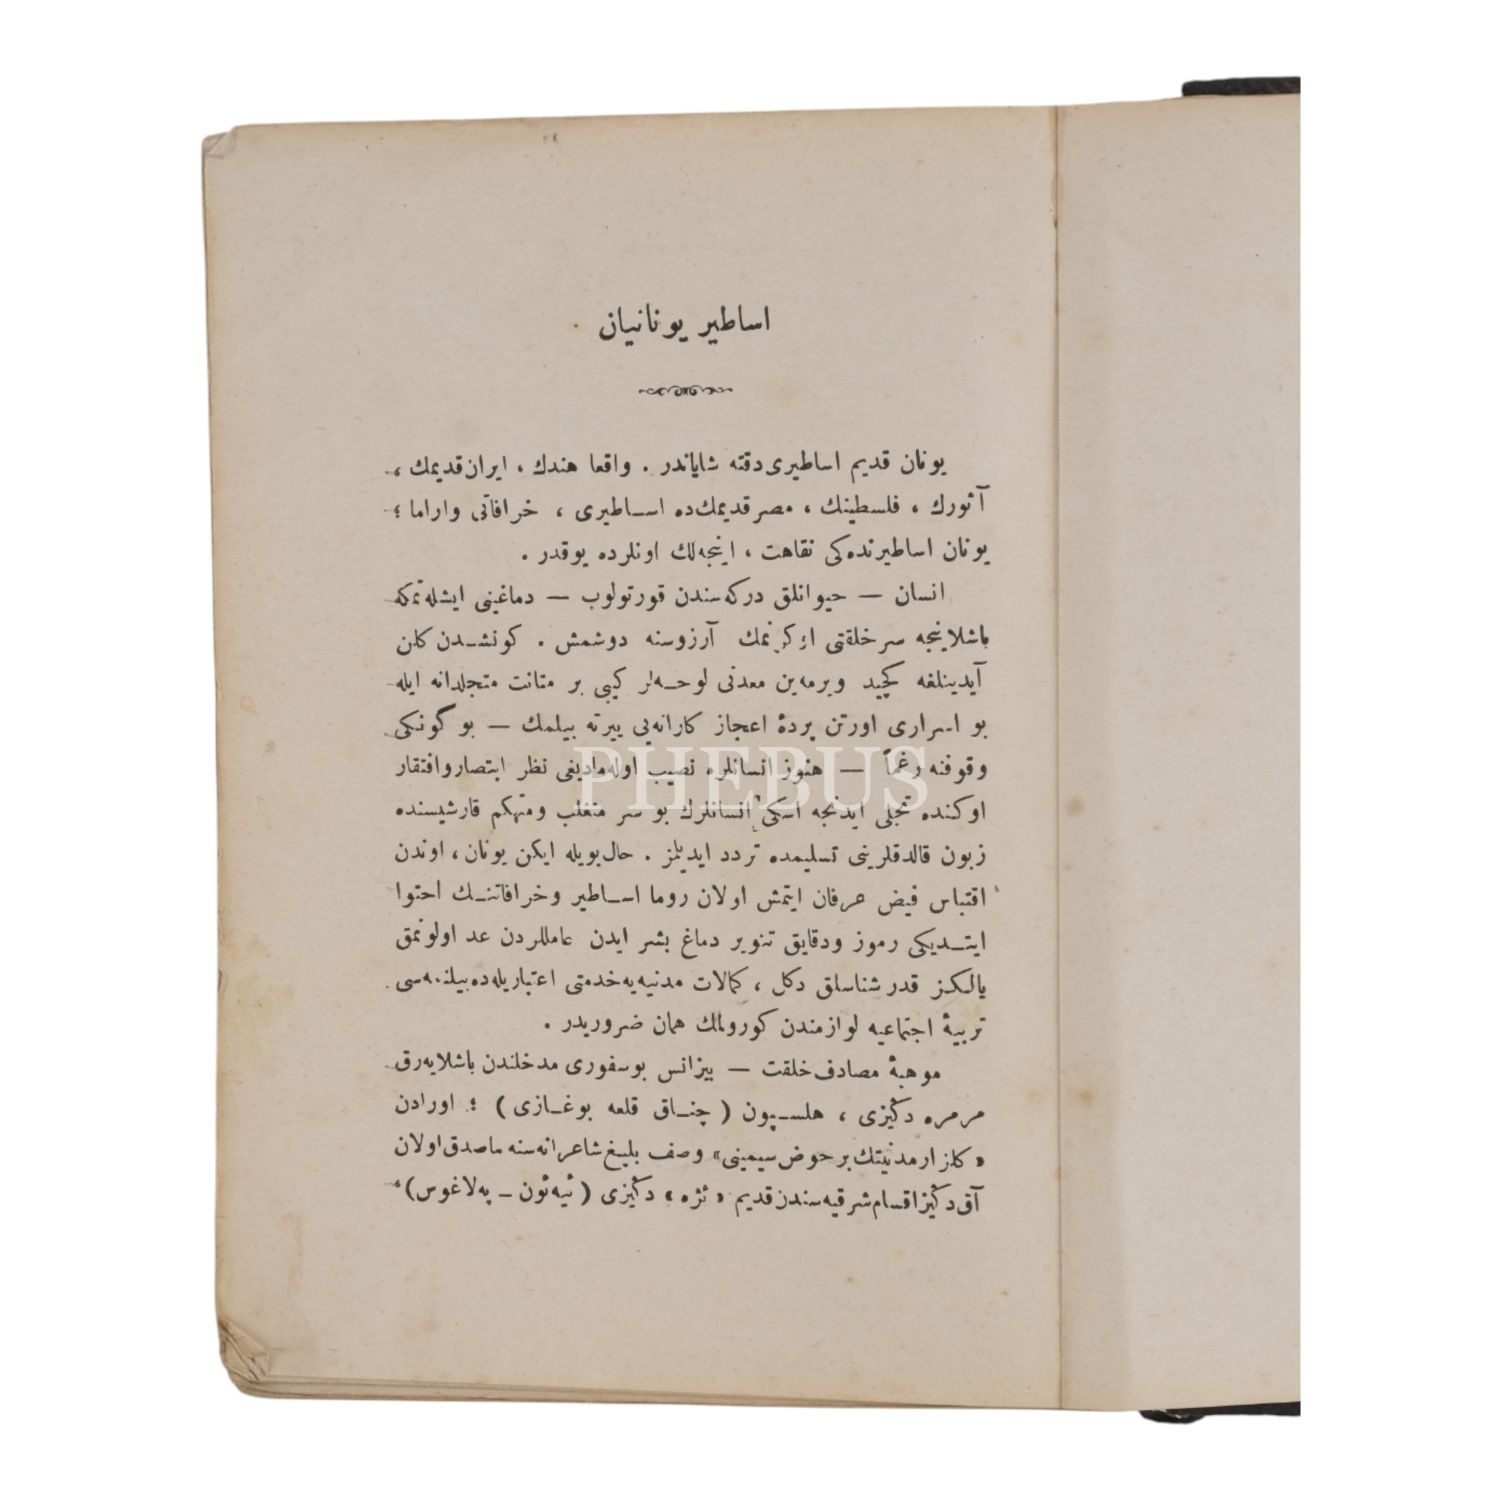 اساطير يونانيان
يونان قديم اساطيرى دقته شاياندر . واقعا هندك ، ايران قديمك ،
آثورك ، فلسطينك ، مصر قديمك ده اساطيرى ، خرافاتى واراما ؛
يونان اساطيرنده كى نقاهت ، اينجه لك اونلرده يوقدر .
انسان — حيوانلق دركه سندن قورتولوب — دماغينى ايشله تمكه
باشلاينجه سر خلقتى اوكرنمك آرزوسنه دوشمش . كونشدن كلن
آيدينلغه كچيد ويرمه ين معدنى لوحه لر كيبى بر متانت متجلدانه ايله
بو اسرارى اورتن پردهٔ اعجاز كارانه يى ييرته بيلمك — بو گونكى
وقوفنه رغماً — هنوز انسانلره نصيب اوله ماديغى نظر ابتصار وافتقار
اوكنده تجلى ايدنجه اسكى انسانلرك بو سر متغلب ومتهكم قارشيسنده
زبون قالدقلرينى تسليمده تردد ايديلمز . حال بويله ايكن يونان ، اوندن
اقتباس فيض عرفان ايتمش اولان روما اساطير وخرافاتنك احتوا
ايتديكى رموز ودقايق تنوير دماغ بشر ايدن عامللردن عد اولونمق
يالكز قدر شناسلق دكل ، كمالات مدنيه يه خدمتى اعتباريله ده بيلنمه سى
تربيهٔ اجتماعيه لوازمندن كورولمك همان ضروريدر .
موهبهٔ مصادف خلقت — بيزانس بوسفورى مدخلندن باشلايه رق
مرمره دكيزى ، هلسپون ( چناق قلعه بوغازى ) ؛ اورادن
« كلزار مدنيتك بر حوض سيمينى » وصف بليغ شاعرانه سنه ماصدق اولان
آق دكيز اقسام شرقيه سندن قديم « ئژه » دكيزى ( ئيه ئون - په لاغوس ) ،
PHEBUS